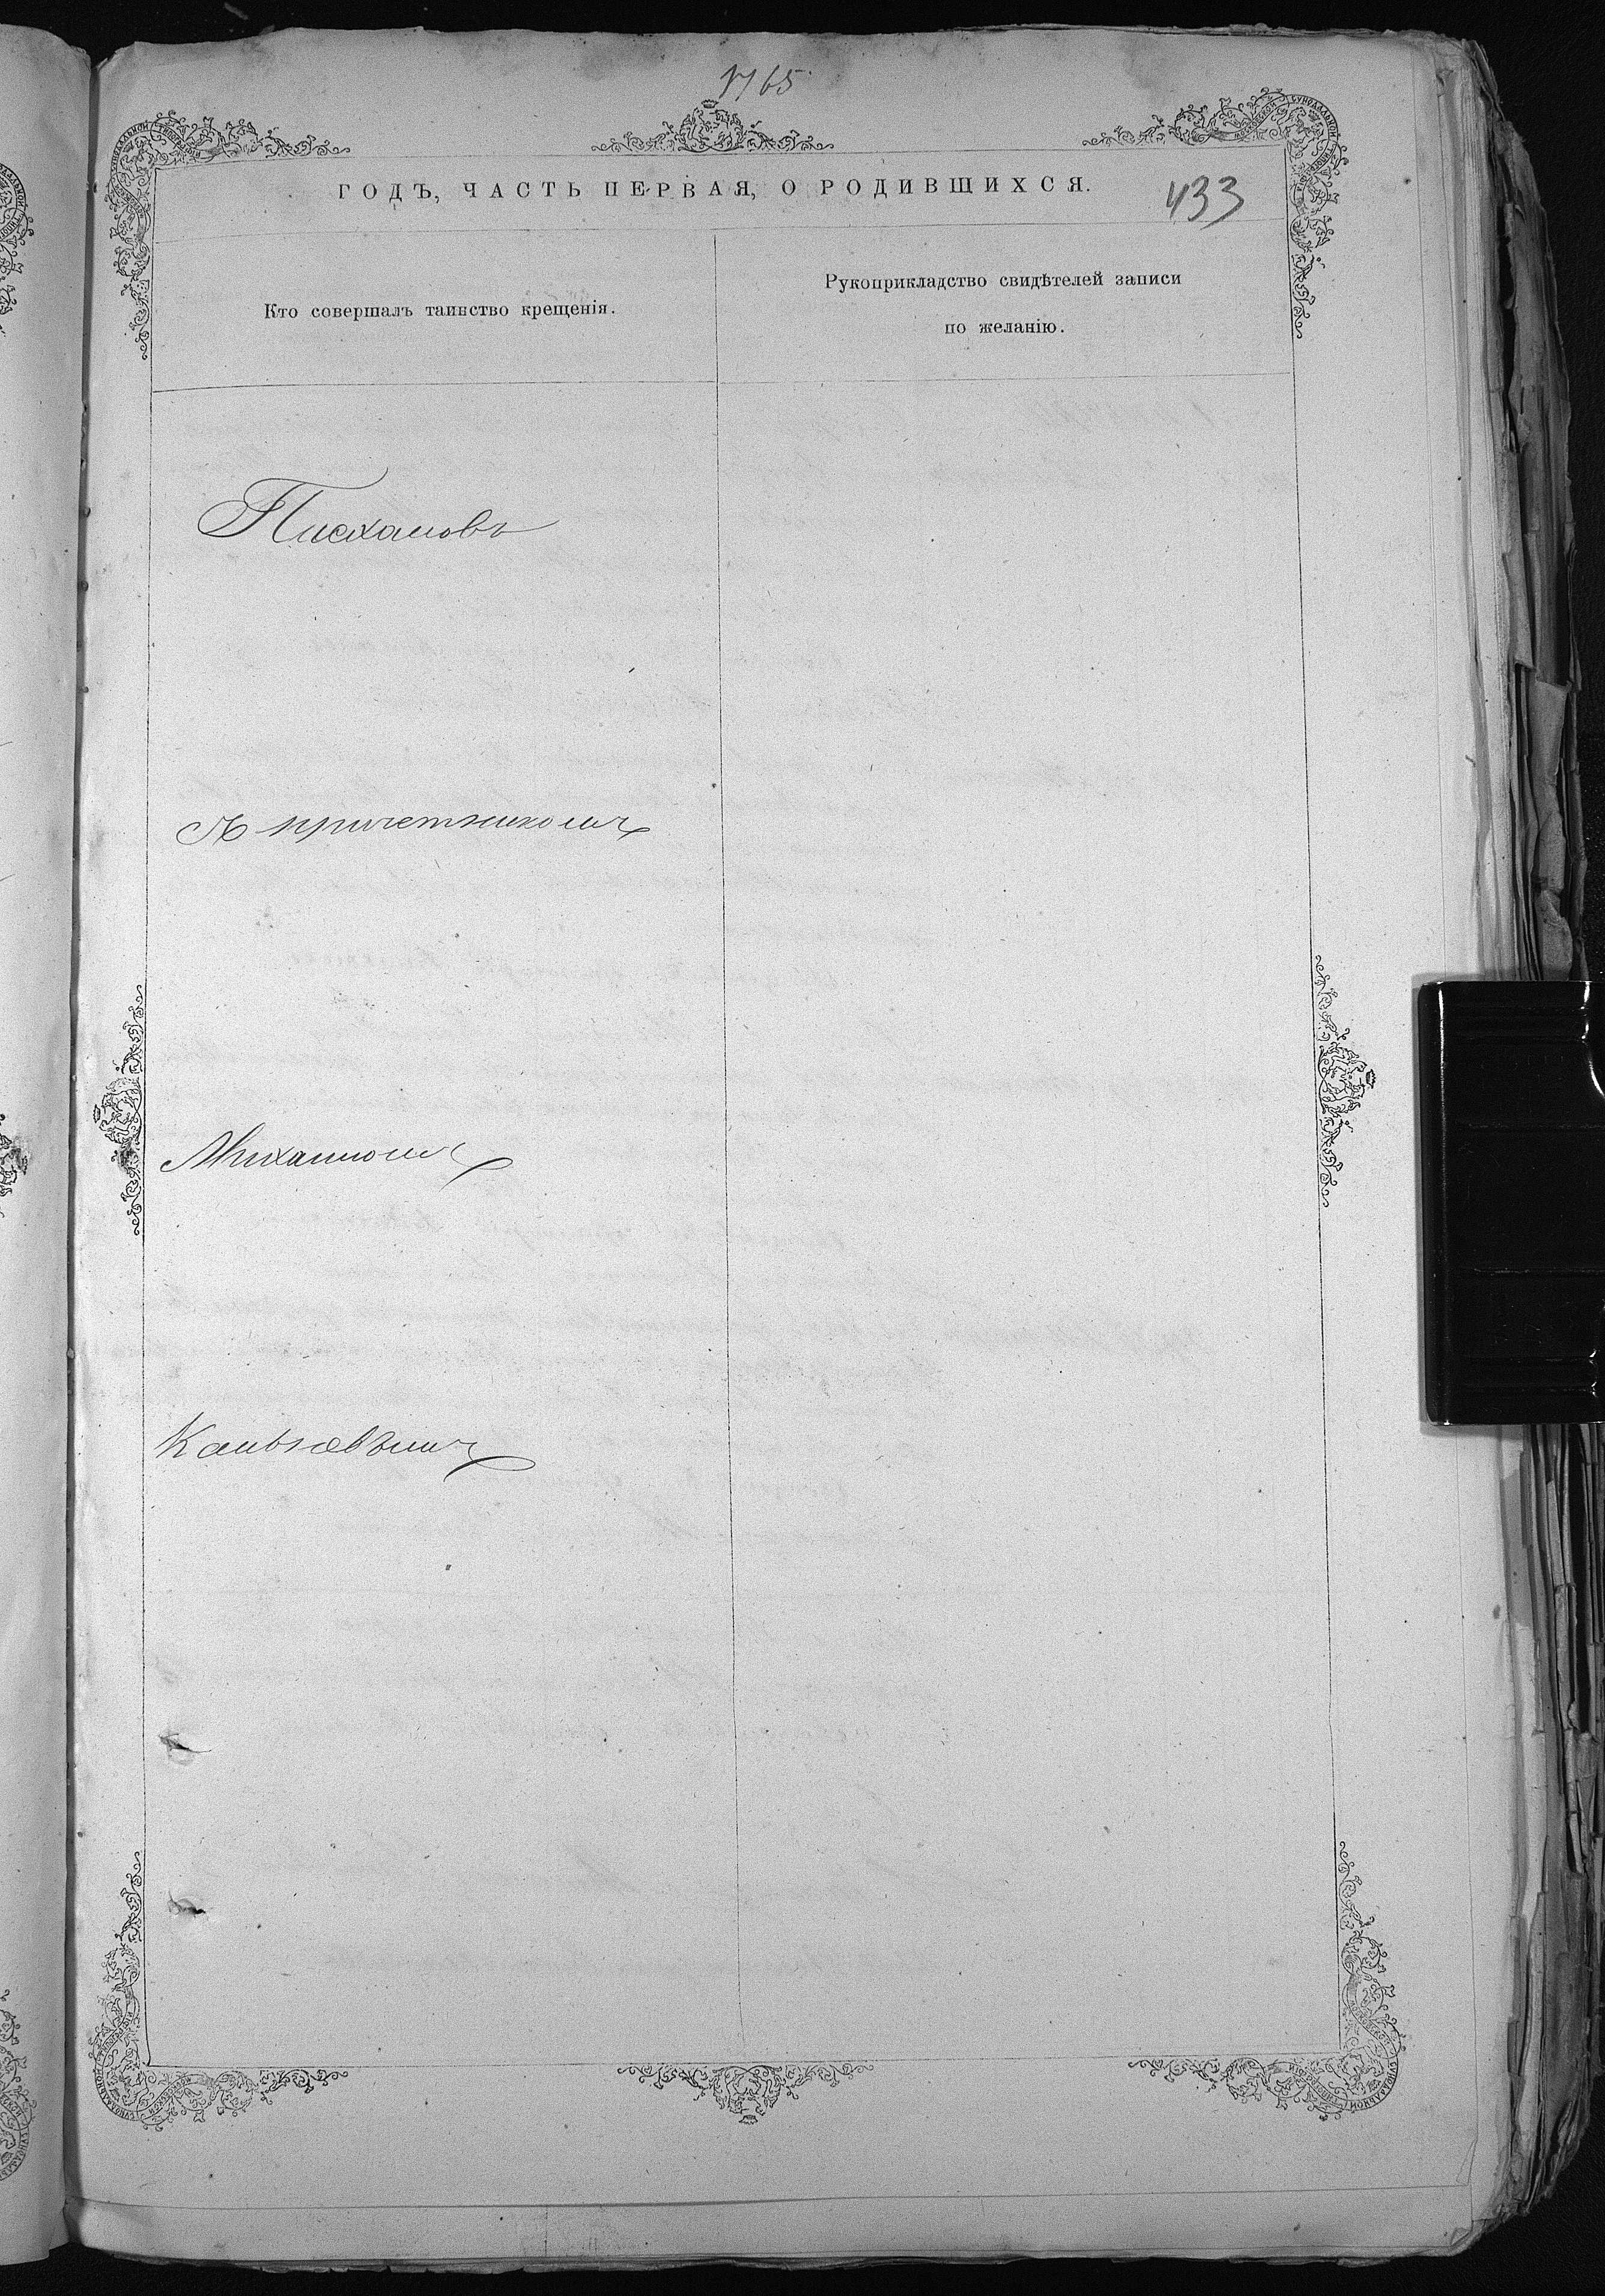 1765
ГОДЪ, ЧАСТЬ ПЕРВАЯ, О РОДИВШИХСЯ.
433
Кто совершалъ таинство крещенія.
Рукоприкладство свидѣтелей записи
по желанію.
съ причетникомъ
Михаиломъ